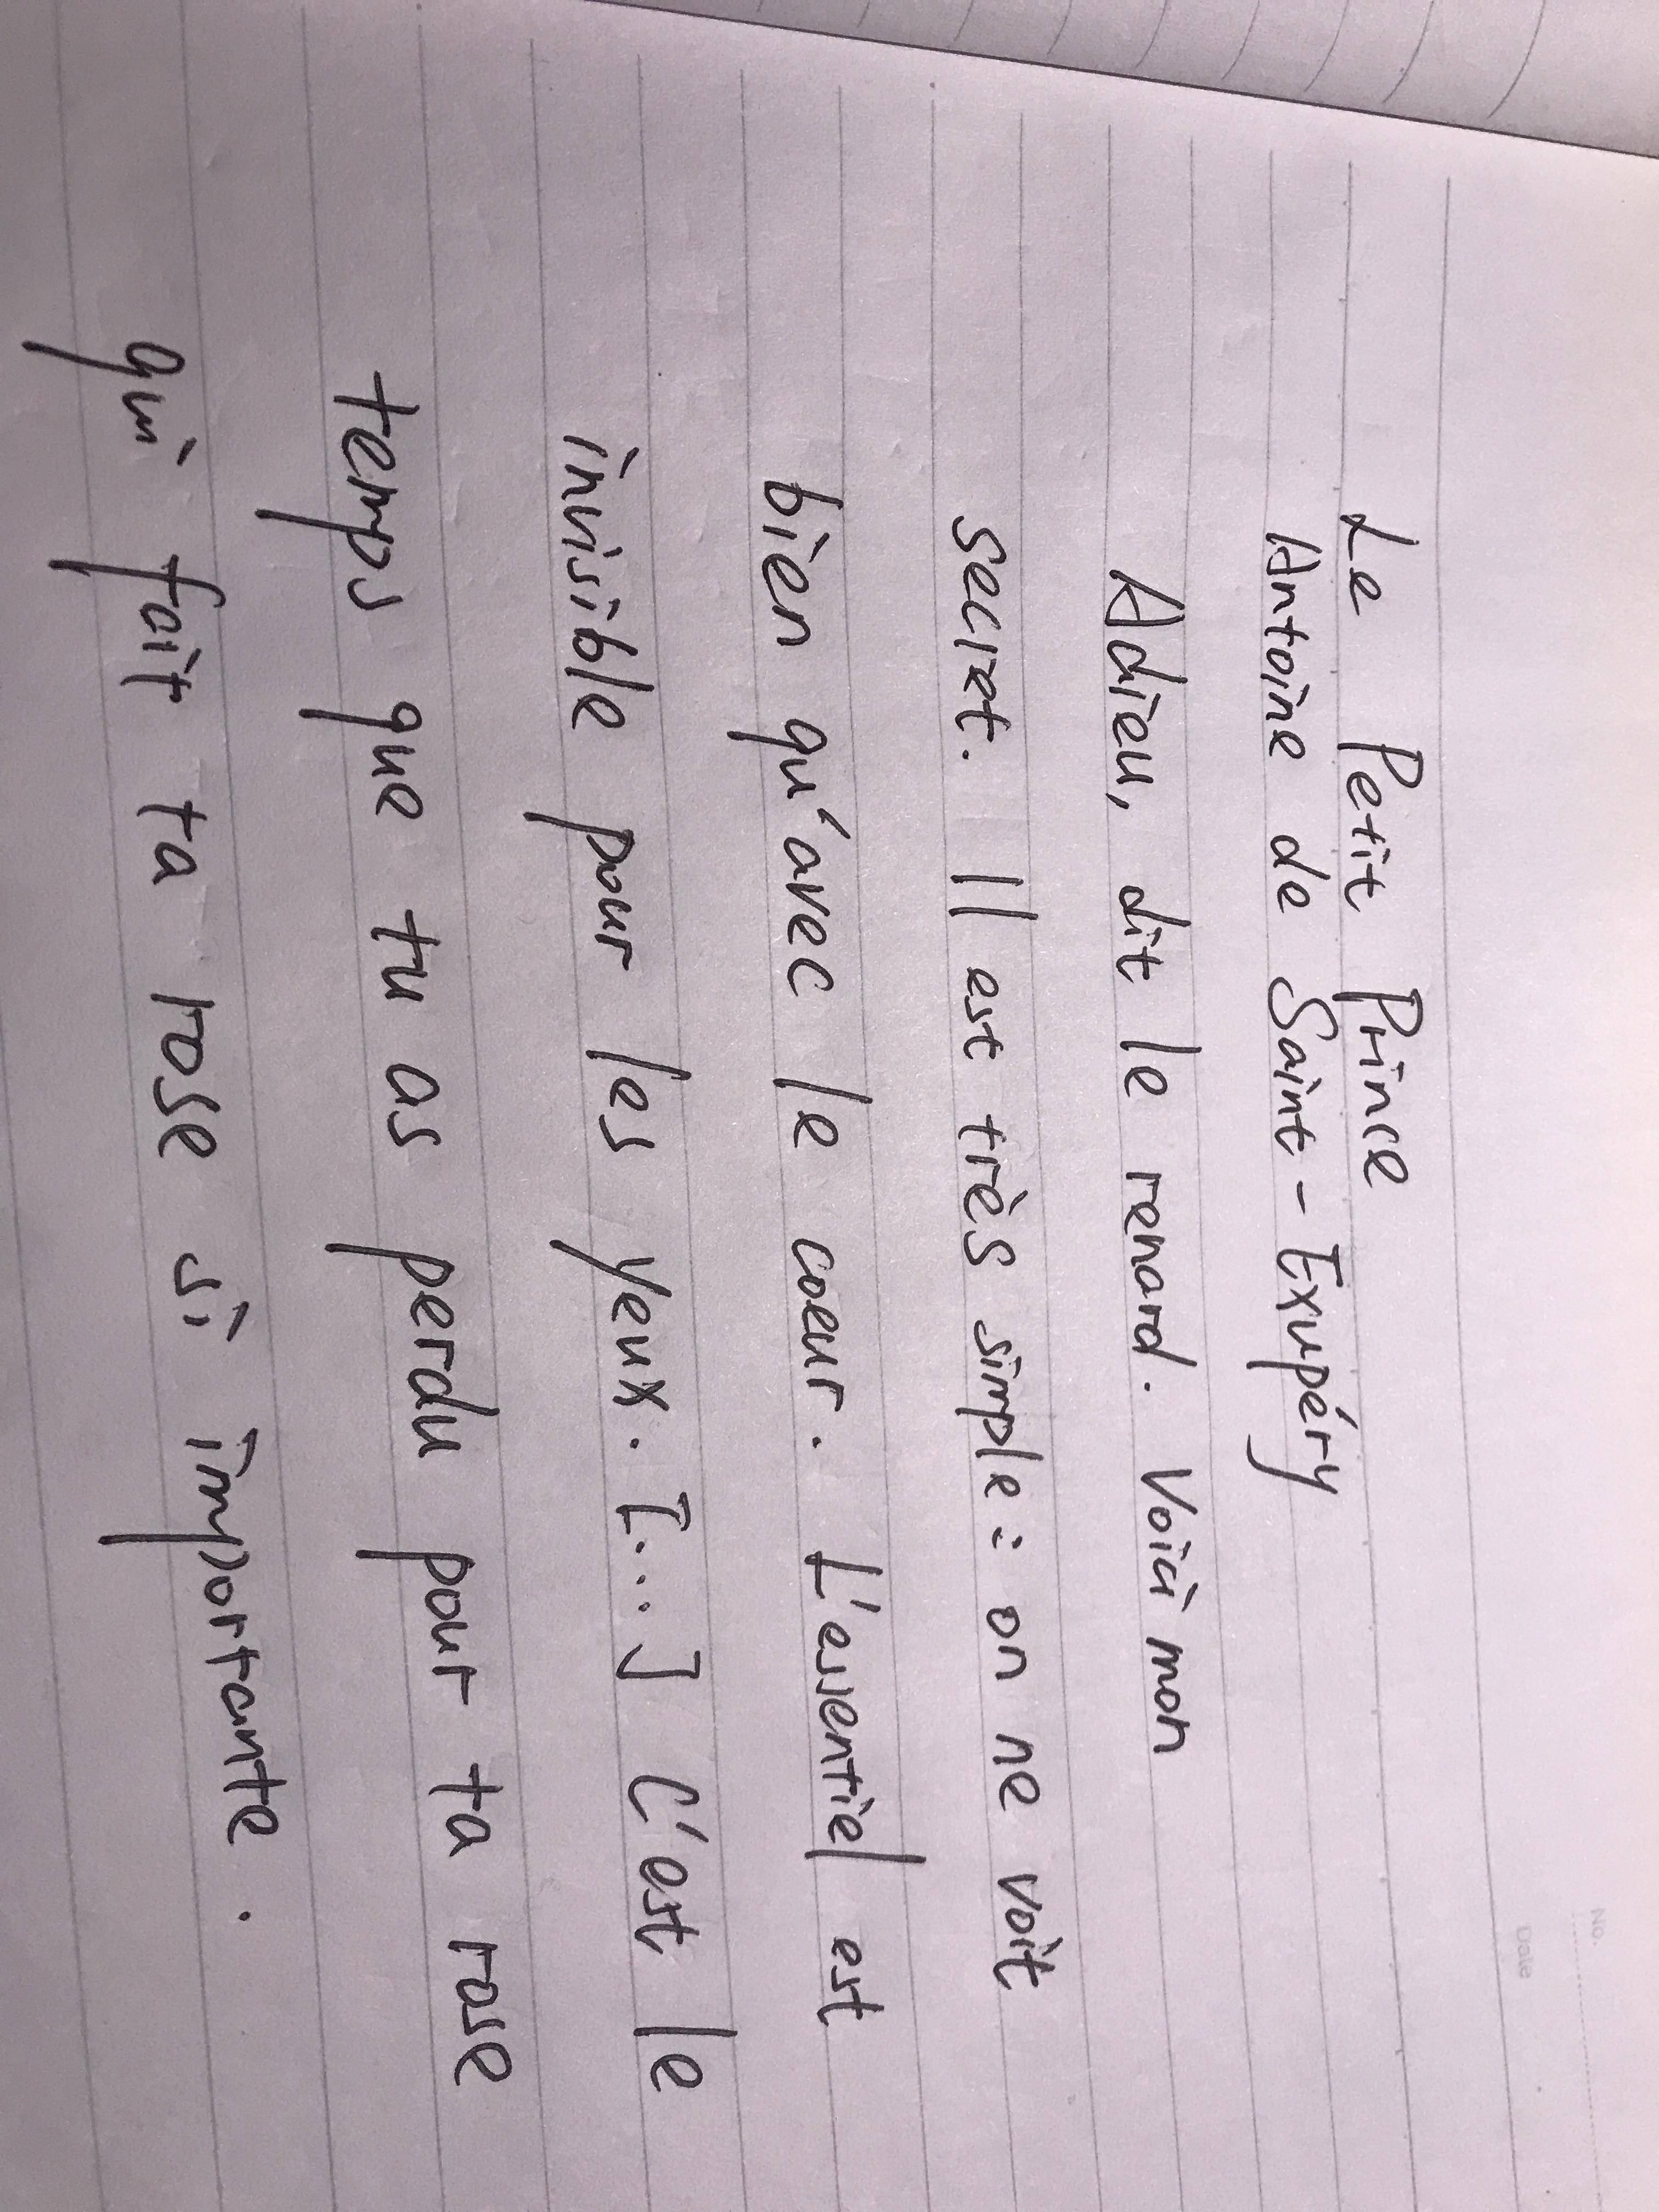 No.
Date
Le Petit Prince
Antoine de Saint-Exupéry
Adieu, dit le renard. Voici mon
secret. Il est très simple : on ne voit
bien qu'avec le coeur. L'essentiel est
invisible pour les yeux. [...] C'est le
temps que tu as perdu pour ta rose
qui fait ta rose si importante.